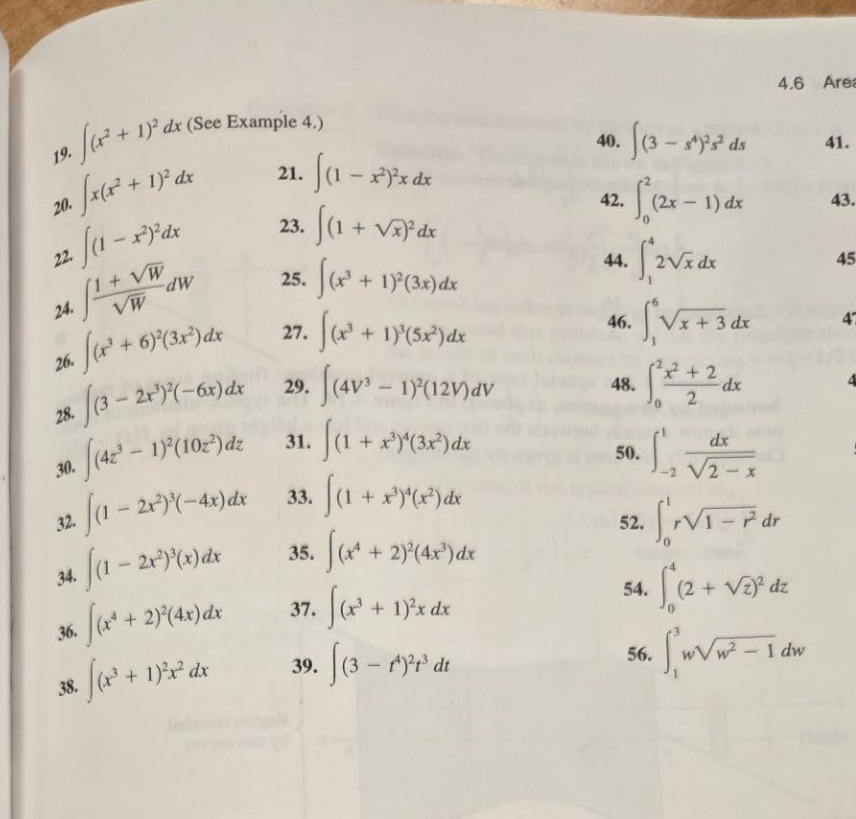 4.6 Area
19. ∫(x² + 1)² dx (See Example 4.)
20. ∫x(x² + 1)² dx
21. ∫(1 − x²)²x dx
22. ∫(1 − x²)² dx
23. ∫(1 + √x)² dx
24. ∫(1 + √W)/√W dW
25. ∫(x³ + 1)²(3x) dx
26. ∫(x³ + 6)²(3x²) dx
27. ∫(x³ + 1)³(5x²) dx
28. ∫(3 − 2x³)²(−6x) dx
29. ∫(4V³ − 1)²(12V) dV
30. ∫(4z³ − 1)²(10z²) dz
31. ∫(1 + x³)⁴(3x²) dx
32. ∫(1 − 2x²)³(−4x) dx
33. ∫(1 + x³)⁴(x²) dx
34. ∫(1 − 2x²)³(x) dx
35. ∫(x⁴ + 2)²(4x³) dx
36. ∫(x⁴ + 2)²(4x) dx
37. ∫(x³ + 1)²x dx
38. ∫(x³ + 1)²x² dx
39. ∫(3 − t⁴)²t³ dt
40. ∫(3 − s⁴)²s² ds
41.
42. ∫₀² (2x − 1) dx
43.
44. ∫₁⁴ 2√x dx
45
46. ∫₁⁶ √(x + 3) dx
47
48. ∫₀² (x² + 2)/2 dx
50. ∫₋₂¹ dx/√(2 − x)
52. ∫₀¹ r√(1 − r²) dr
54. ∫₀⁴ (2 + √z)² dz
56. ∫₁³ w√(w² − 1) dw